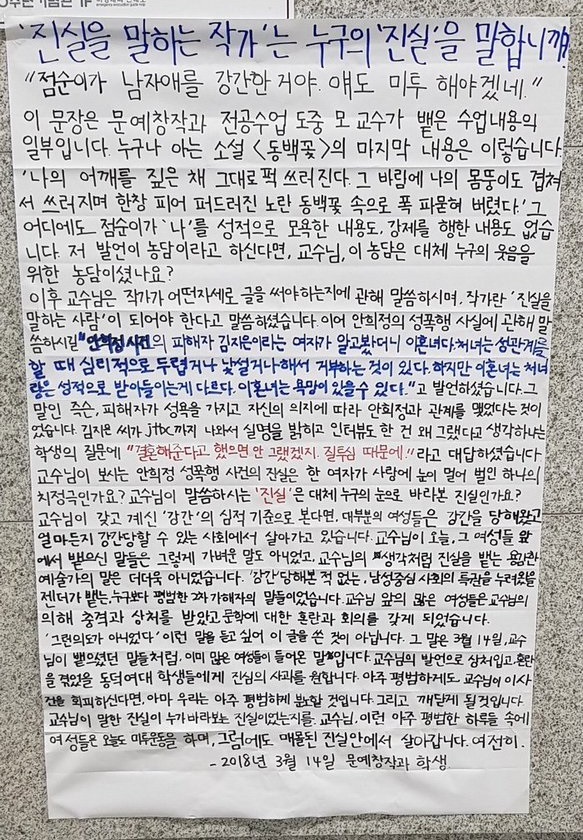 '진실을 말하는 작가'는 누구의 '진실'을 말합니까?
"점순이가 남자애를 강간한 거야. 얘도 미투 해야겠네."
이 문장은 문예창작과 전공수업 도중 모 교수가 뱉은 수업내용의
일부입니다. 누구나 아는 소설 〈동백꽃〉의 마지막 내용은 이렇습니다
'나의 어깨를 짚은 채 그대로 퍽 쓰러진다. 그 바람에 나의 몸뚱이도 겹쳐
서 쓰러지며 한창 피어 퍼드러진 노란 동백꽃 속으로 폭 파묻혀 버렸다.' 그
어디에도 점순이가 '나'를 성적으로 모욕한 내용도, 강제를 행한 내용도 없습
니다. 저 발언이 농담이라고 하신다면, 교수님, 이 농담은 대체 누구의 웃음을
위한 농담이셨나요?
이후 교수님은 작가가 어떤자세로 글을 써야하는지에 관해 말씀하시며, 작가란 '진실을
말하는 사람'이 되어야 한다고 말씀하셨습니다. 이어 안희정의 성폭행 사실에 관해 말
씀하시길 "안희정 사건의 피해자 김지은이라는 여자가 알고봤더니 이혼녀다. 처녀는 성관계를
할 때 심리적으로 두렵거나 낯설거나 해서 거부하는 것이 있다. 하지만 이혼녀는 처녀
랑은 성적으로 받아들이는게 다르다. 이혼녀는 욕망이 있을 수 있다." 고 발언하셨습니다. 그
말인 즉슨, 피해자가 성욕을 가지고 자신의 의지에 따라 안희정과 관계를 맺었다는 것이
었습니다. 김지은 씨가 jtbc까지 나와서 실명을 밝히고 인터뷰도 한 건 왜 그랬다고 생각하냐는
학생의 질문에 "결혼해준다고 했으면 안 그랬겠지. 질투심 때문에." 라고 대답하셨습니다
교수님이 보시는 안희정 성폭행 사건의 진실은 한 여자가 사랑에 눈이 멀어 벌인 하나의
치정극인가요? 교수님이 말씀하시는 '진실'은 대체 누구의 눈으로 바라본 진실인가요?
교수님이 갖고 계신 '강간'의 심적 기준으로 본다면, 대부분의 여성들은 강간을 당해왔고
얼마든지 강간당할 수 있는 사회에서 살아가고 있습니다. 교수님이 오늘, 그 여성들 앞
에서 뱉으신 말들은 그렇게 가벼운 말도 아니었고, 교수님의 생각처럼 진실을 뱉는 용감한
예술가의 말은 더더욱 아니었습니다. '강간'당해본 적 없는, 남성중심 사회의 특권을 누려온
젠더가 뱉는, 누구보다 평범한 2차 가해자의 말들이었습니다. 교수님 앞의 많은 여성들은 교수님의
의해 충격과 상처를 받았고 문학에 대한 혼란과 회의를 갖게 되었습니다.
'그런의도가 아니었다' 이런 말을 듣고 싶어 이 글을 쓴 것이 아닙니다. 그 말은 3월 14일, 교수
님이 뱉으셨던 말들처럼, 이미 많은 여성들이 들어온 말입니다. 교수님의 발언으로 상처입고, 혼란
을 겪었을 동덕여대 학생들에게 진심의 사과를 원합니다. 아주 평범하게도, 교수님이 이 사
건을 회피하신다면, 아마 우리는 아주 평범하게 분노할 것입니다. 그리고 깨닫게 될 것입니다.
교수님이 말한 진실이 누가 바라보는 진실이었는지를. 교수님, 이런 아주 평범한 하루들 속에
여성들은 오늘도 미투운동을 하며, 그럼에도 매몰된 진실안에서 살아갑니다. 여전히.
- 2018년 3월 14일 문예창작과 학생